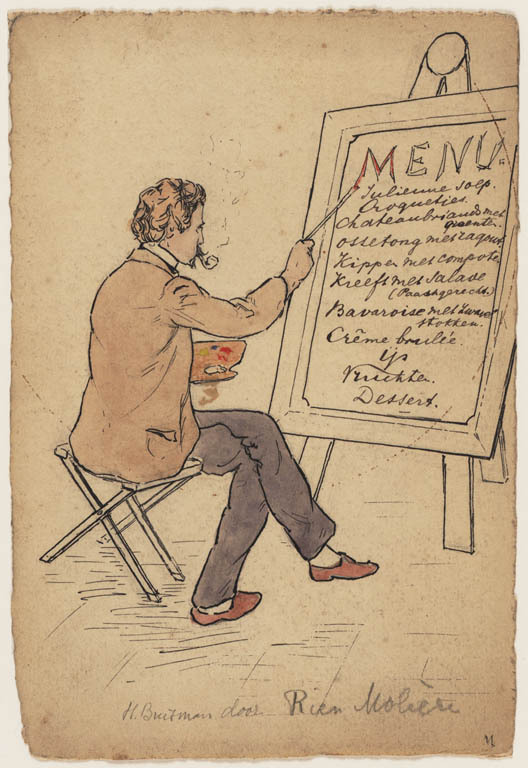 MENU.
Julienne soep.
Croquetjes.
Chateaubriands met
groenten.
ossetong met ragout
Kippen met compote
Kreeft met Salade
(Paaschgerecht.)
Bavaroise met
stokken.
Crême boulée
Ys
Vruchten.
Dessert.
H. Buitman door Rien Molière